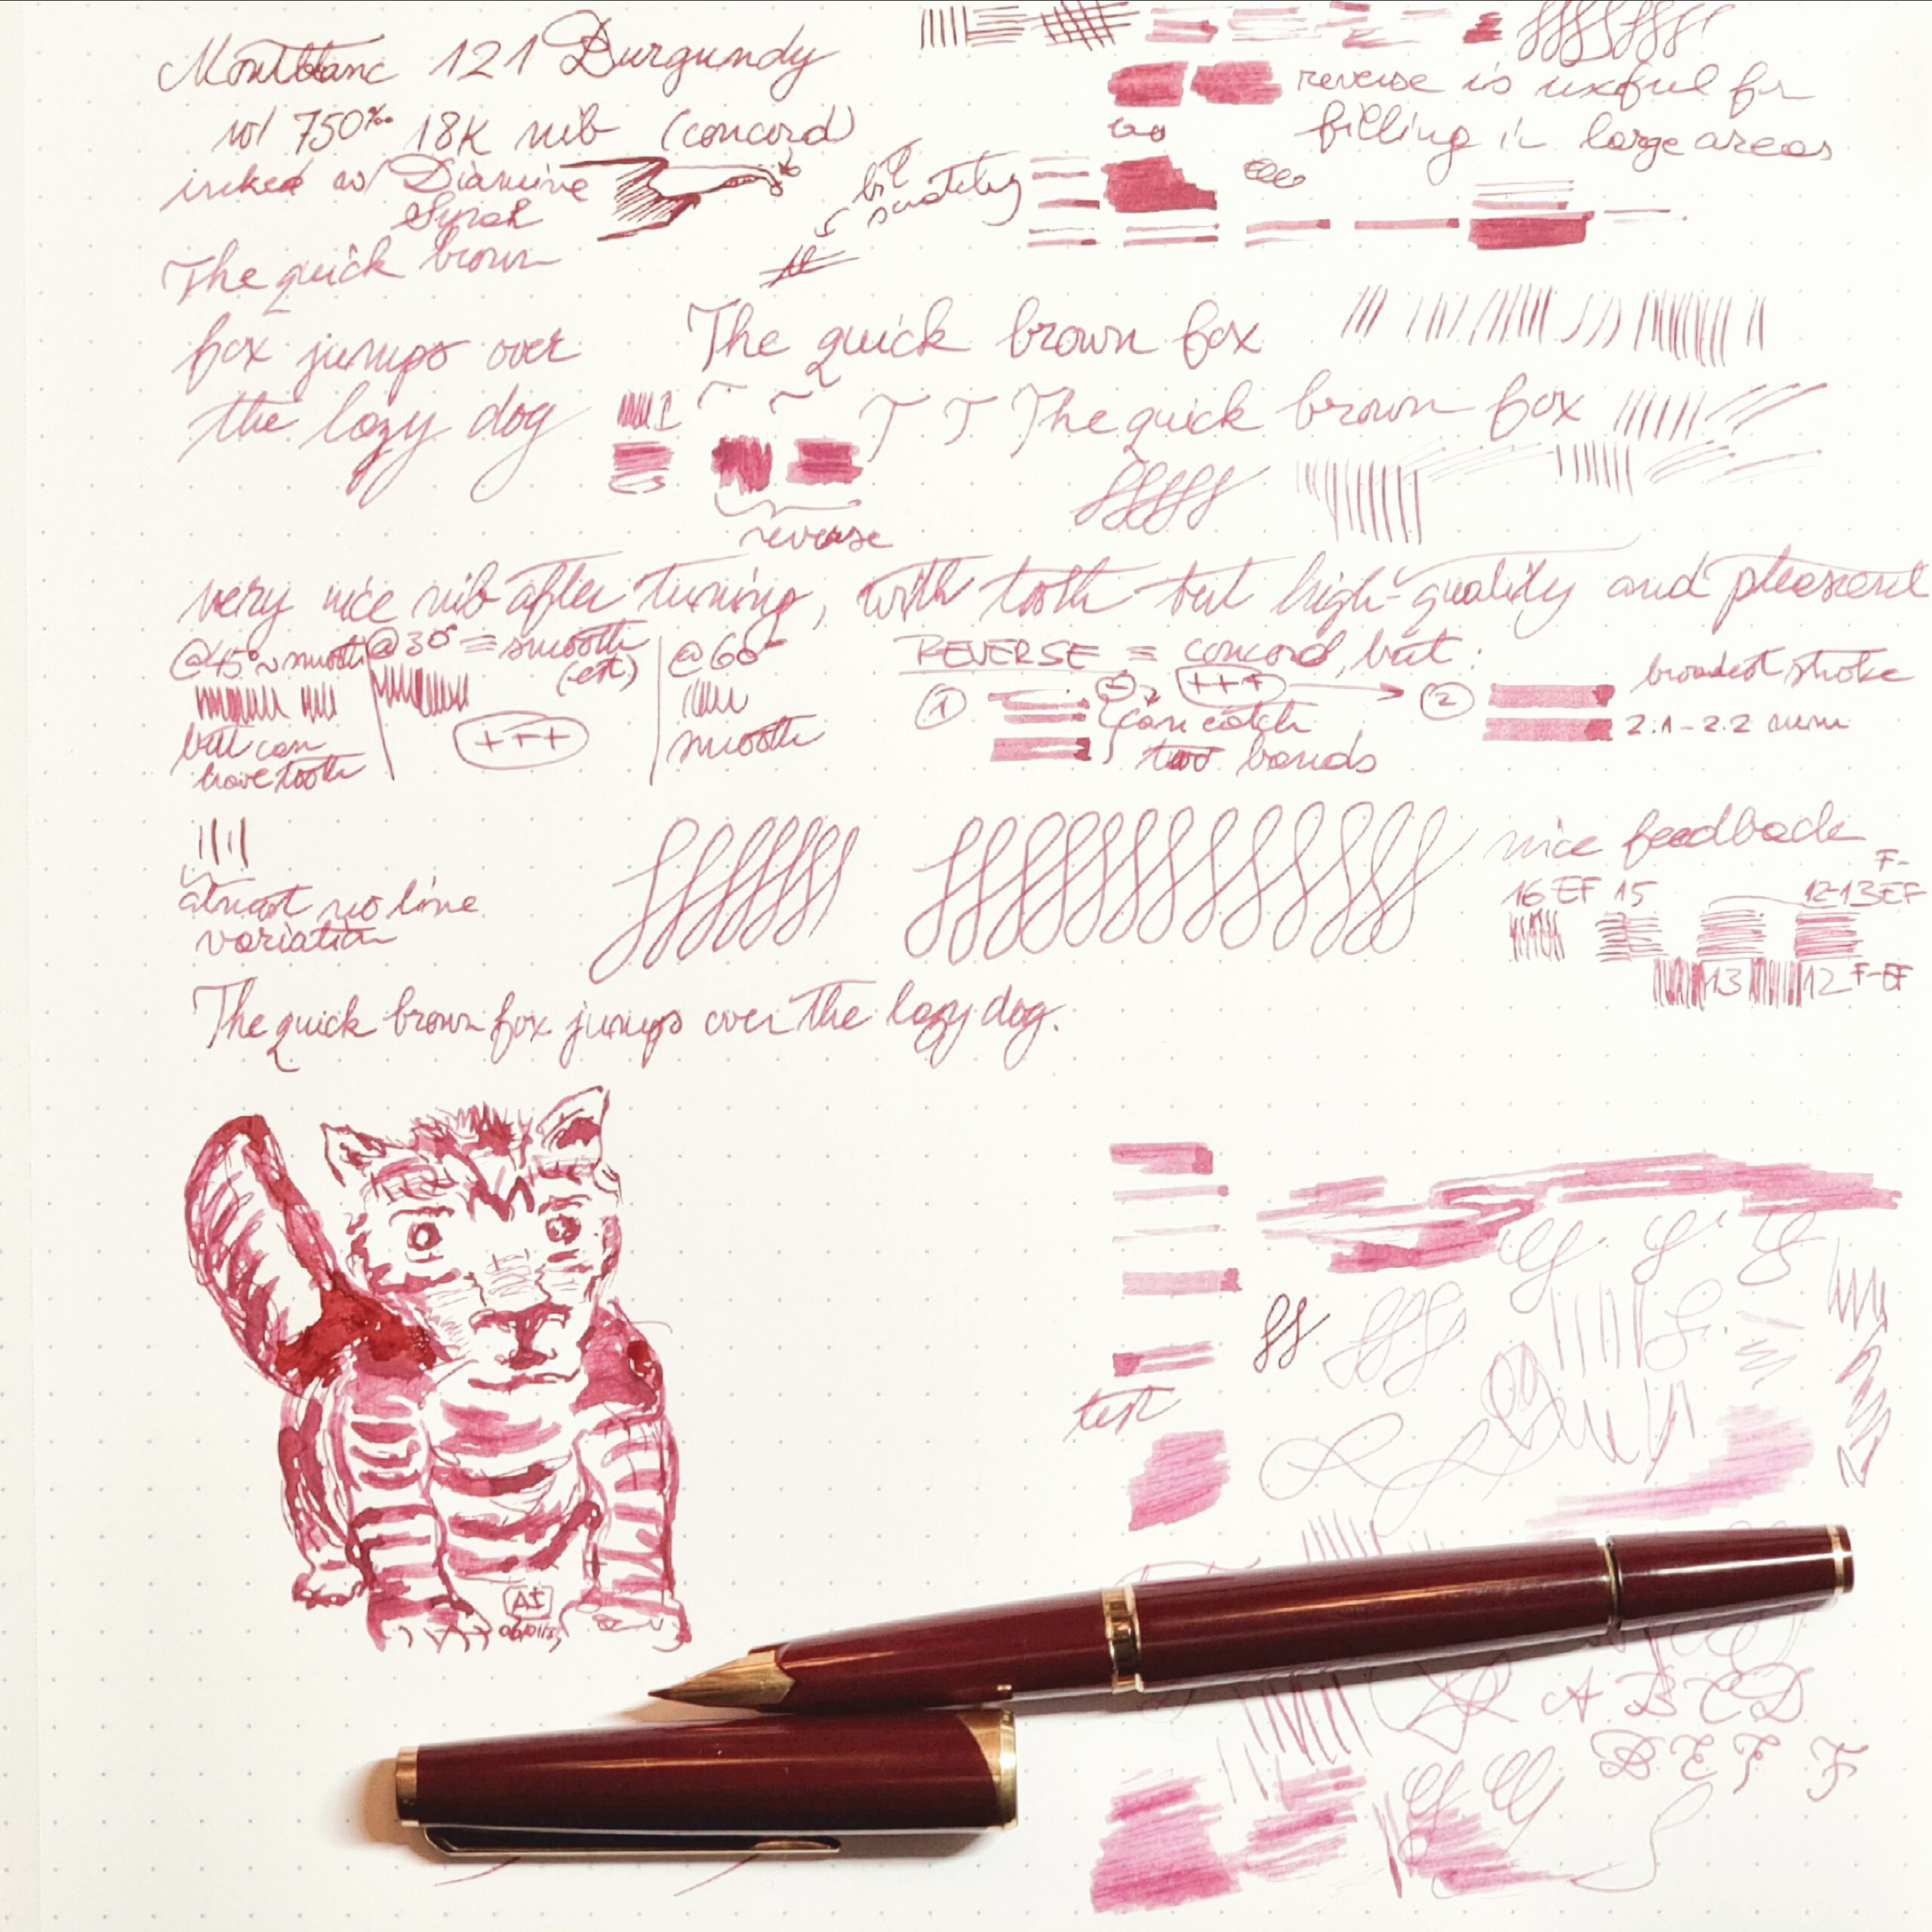 Montblanc 121 Burgundy
w/ 750‰ 18K nib (concord)
inked w/ Diamine
Syrah
bit
scratchy
reverse is useful for
filling in large areas
The quick brown
fox jumps over
the lazy dog
The quick brown fox
T T The quick brown fox
reverse
very nice nib after tuning, with tooth but high-quality and pleasant
@45° ~ smooth
but can
have tooth
@30° = smooth
(-est)
+++
@60°
smooth
REVERSE = concord, but:
1
+++
can catch
two bands
2
broadest stroke
2.1-2.2 mm
almost no line
variation
nice feedback
16 EF 15
12-13 EF
F-
13
12 F-EF
The quick brown fox jumps over the lazy dog.
test
A B C D
D E F F